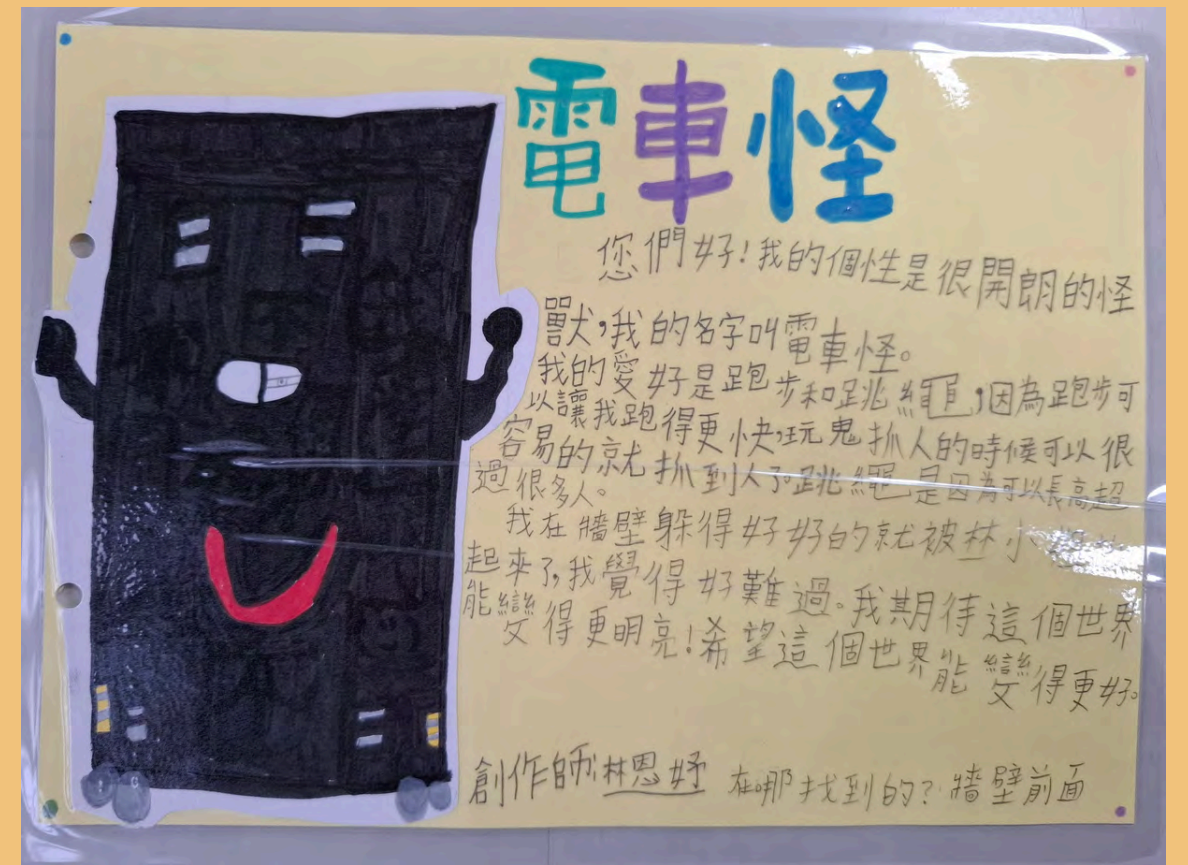 電車怪
您們好!我的個性是很開朗的怪
獸,我的名字叫電車怪。
我的愛好是跑步和跳繩,因為跑步可
以讓我跑得更快,玩鬼抓人的時候可以很
容易的就抓到人了跳繩是因為可以長高超
過很多人。
我在牆壁躲得好好的就被林小
起來了,我覺得好難過。我期待這個世界
能變得更明亮!希望這個世界能變得更好。
創作師:林恩妤 在哪找到的?牆壁前面